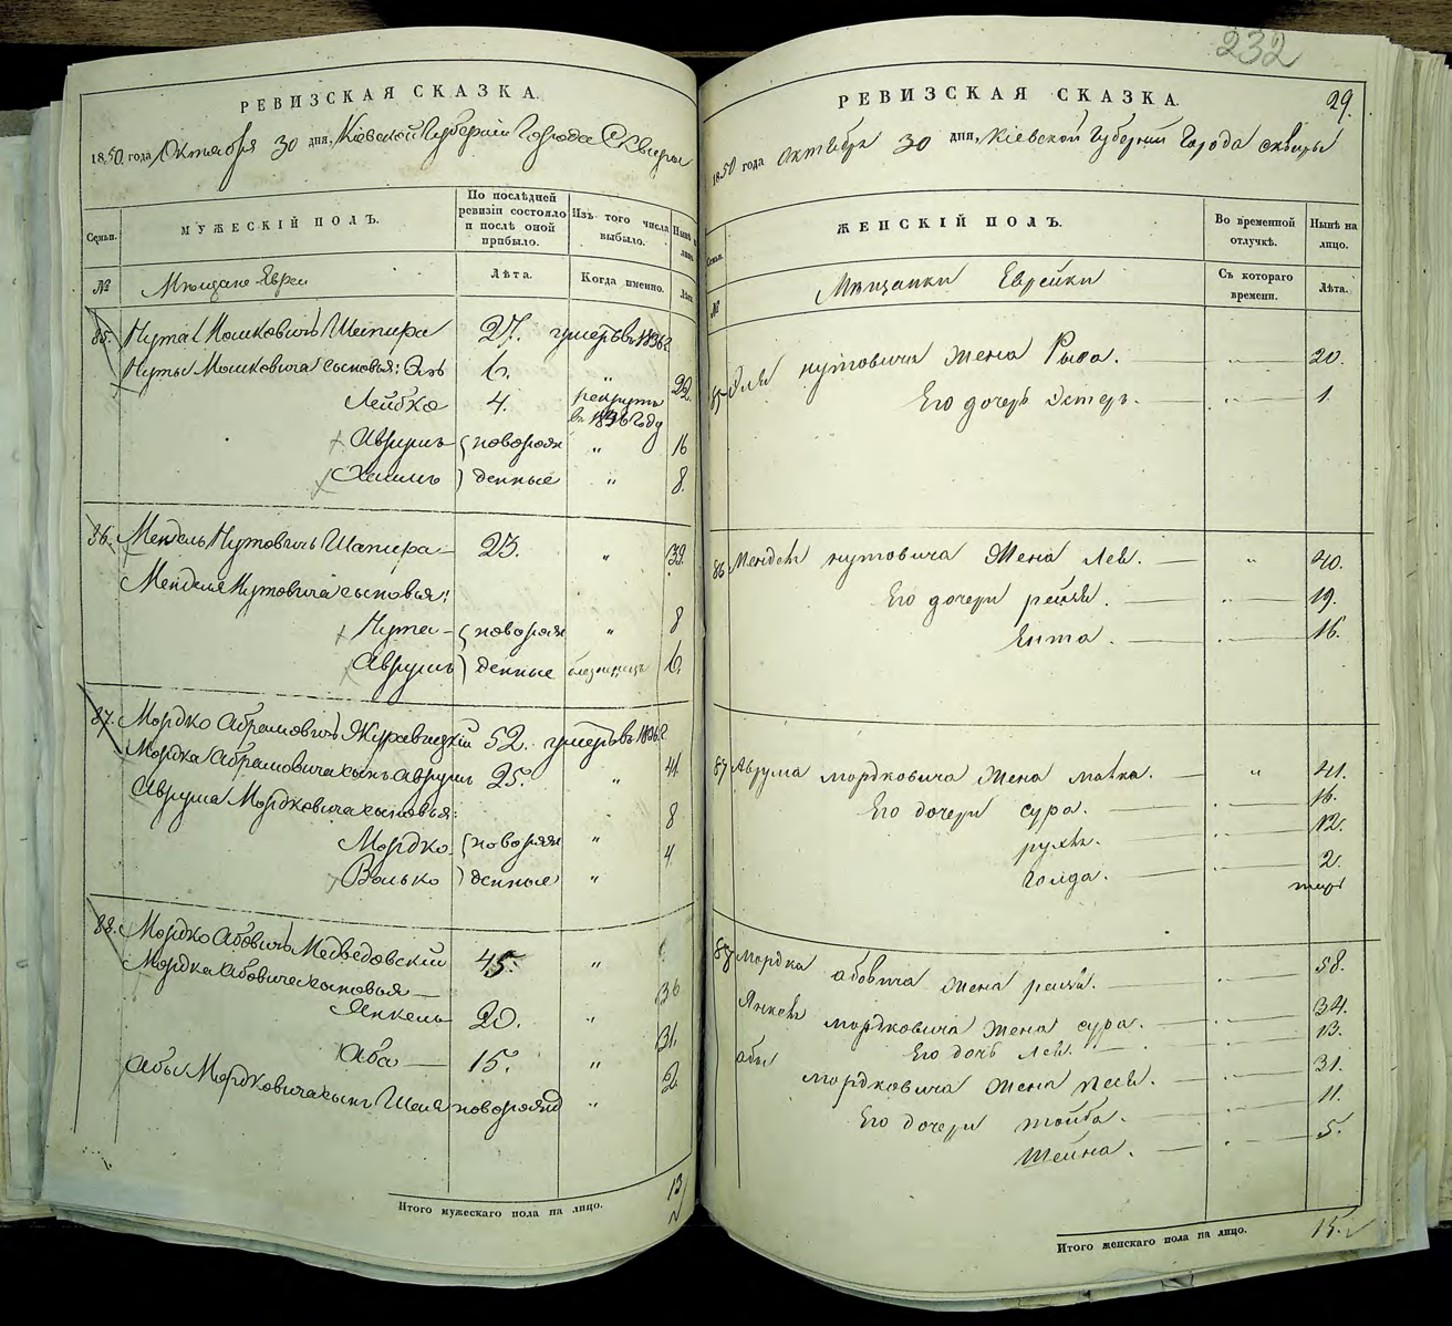 РЕВИЗСКАЯ СКАЗКА.
1850 года Октября 30 дня, Кіевской Губерніи Города Сквиры
Семьи.
МУЖЕСКІЙ ПОЛЪ.
По послѣдней ревизіи состояло и послѣ оной прибыло.
Изъ того числа выбыло.
Нынѣ
№
Мѣщане Евреи
Лѣта.
Когда именно.
Лѣта
85. Нута Мошковичъ Шапира 27. умеръ въ 1836 г
Нуты Мошковича сыновья: Эль 6. " 22.
Лейбко 4. рекрутъ
Аврумъ новорож " 16
Хаимъ денные " 8.
86. Мендель Нутовичъ Шапира 23. " 39.
Менделя Нутовича сыновья:
Нута новорож " 8
Аврумъ денные близнецъ 6.
87. Мордко Абрамовичъ Журавицкій 52. умеръ въ
Мордка Абрамовича сынъ Аврумъ 25. " 41
Аврума Мордковича сыновья:
Мордко новорож " 8
Волько денные " 4
88. Мордко Абовичъ Медведовскій 45. "
Мордка Абовича сыновья
Янкель 20. " 36
Аба 15. " 31.
Абы Мордковича сынъ новорожд " 2
Итого мужескаго пола на лицо. 13
232
29.
РЕВИЗСКАЯ СКАЗКА.
1850 года Октября 30 дня, Кіевской Губерніи Города Сквиры
Семьи.
ЖЕНСКІЙ ПОЛЪ.
Во временной отлучкѣ.
Нынѣ на лицо.
№
Мѣщанки Еврейки
Съ котораго времени.
Лѣта.
85 Эля нутовича жена Рыса. " 20.
Его дочерь Эстеръ. " 1.
86 Менделя нутовича жена Лея. " 40.
Его дочери рейзя. " 19.
Ента. " 16.
87 Аврума мордковича жена малка. " 41.
Его дочери сура. " 16.
рухля. " 12.
голда. " 2.
88 мордка абовича жена рейзя. " 58.
Янкеля мордковича жена сура. " 34.
Его дочь лея. " 13.
абы мордковича жена песя. " 31.
Его дочери тойба. " 11.
шейна. " 5.
Итого женскаго пола на лицо. 15.